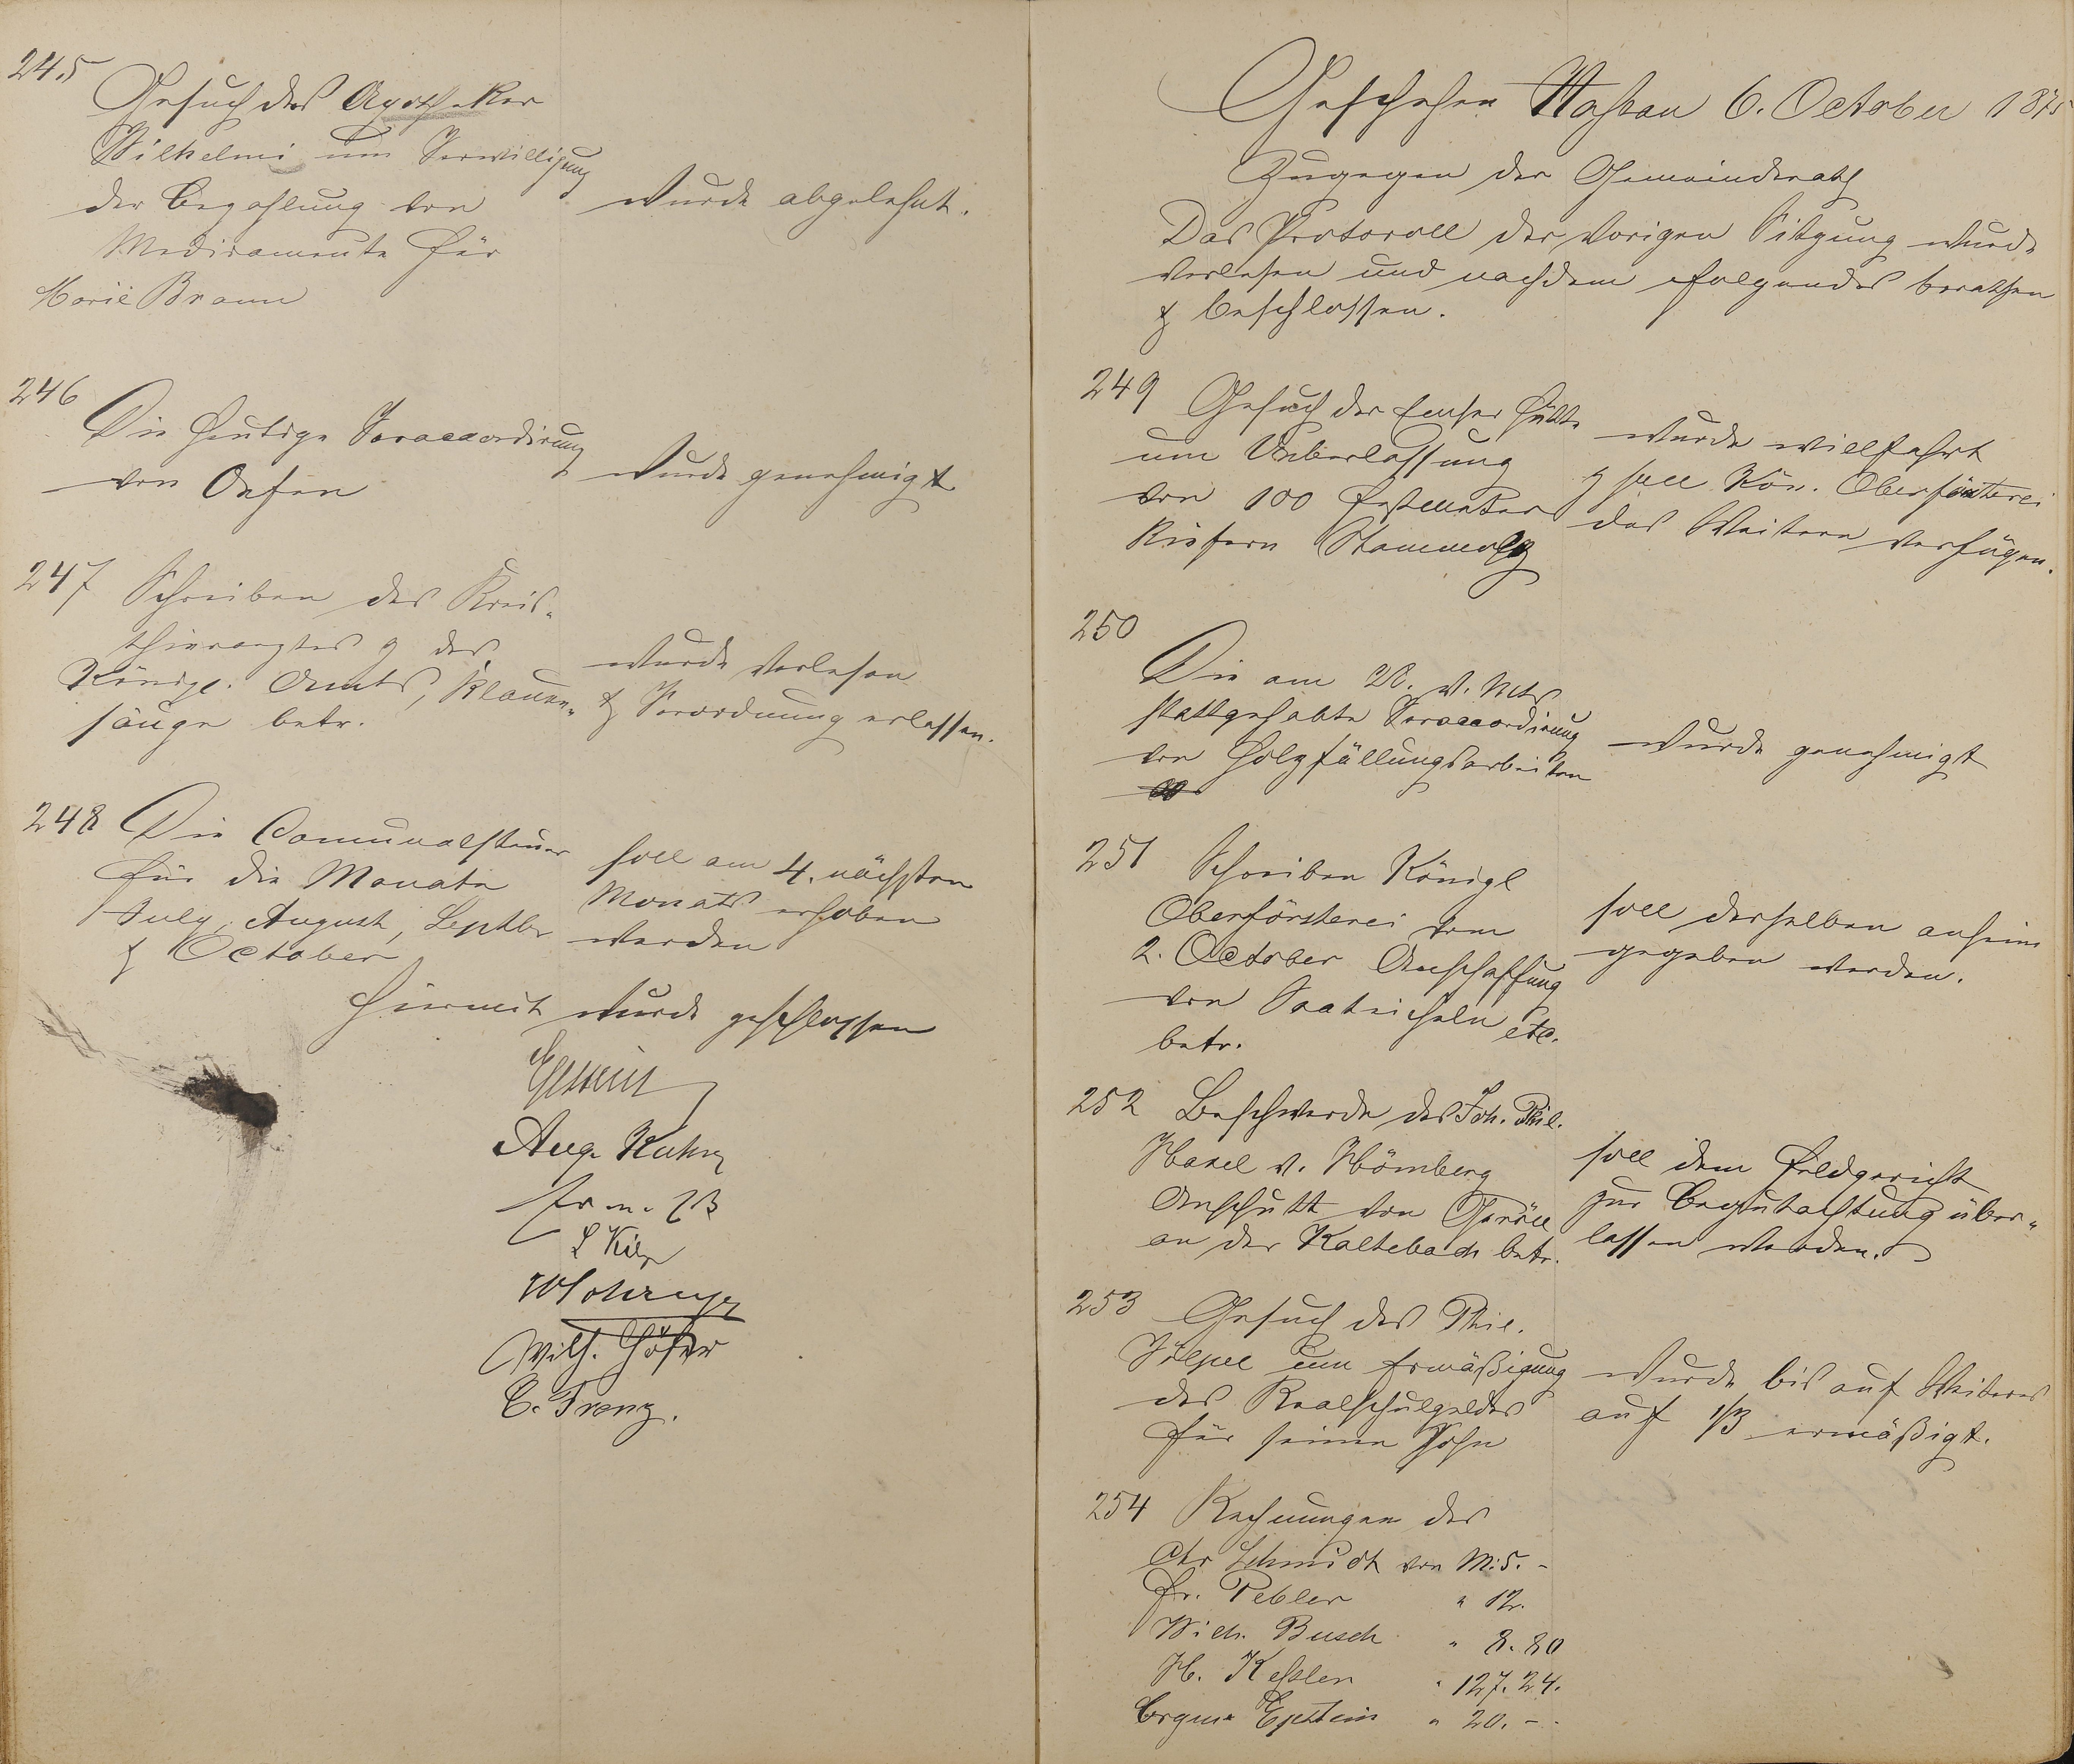 245
Gesuch des Apotheker
Wilhelmi um Verwilligung
der Bezahlung von
Medicamente für
Marie Braun
wurde abgelehnt.
246
Die heutige Veraccordirung
von Oefen
wurde genehmigt
247 Schreiben des Kreis-
thierarztes & des
Königl. Amts, Klauen-
säuge betr.
wurde verlesen
& Verordnung erlassen.
248 Die Communalsteuer
für die Monate
July, August, Septbr
& October
soll am 4. nächsten
Monats erhoben
werden
Hiermit wurde geschlossen
Aug. Kuhn
L Kilp
Wilh. Höfer
C. Franz.
Geschehen Nassau 6. October 1875
Zugegen der Gemeinderath
Das Protocoll der vorigen Sitzung wurde
verlesen und nachdem folgendes berathen
& beschlossen.
249 Gesuch der Emser Hütte
um Ueberlassung
von 100 Festmeter
Kiefern Stammholz
wurde willfahrt
& soll Kön. Oberförsterei
das Weitere verfügen.
250
Die am 28. v. Mts
stattgehabte Veraccordirung
von Holzfällungsarbeiten
wurde genehmigt
251 Schreiben Königl
Oberförsterei vom
2. October Anschaffung
von Saateicheln etc.
betr.
soll derselben anheim
gegeben werden.
252 Beschwerde des Joh. Phil.
Hasel v. Hömberg
Anschutt von Geröll
an der Kaltebach betr.
soll dem Feldgericht
zur Begutachtung über-
lassen werden.
253 Gesuch des Phil.
um Ermäßigung
des Realschulgeldes
für seinen Sohn
wurde bis auf Weiteres
auf 1/3 ermäßigt.
254 Rechnungen des
Chr Schmidt von M: 5. -
Fr. Pebler " 12.
Wich. Busch " 8. 80
H. Keßler " 127. 24.
Epstein " 20. -